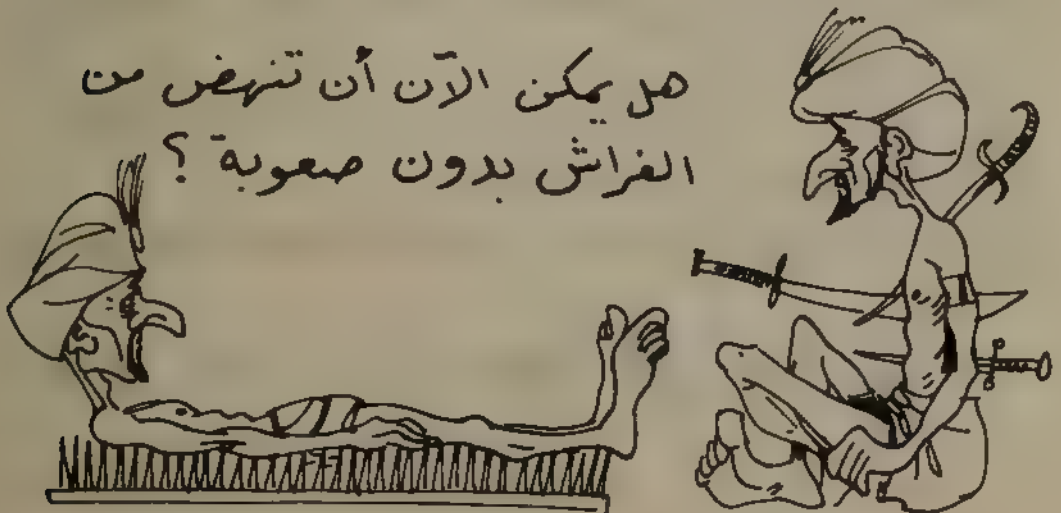 هل يمكن الآن أن تنهض من
الفراش بدون صعوبة ؟